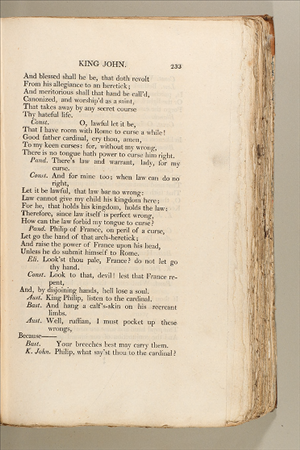 KING JOHN. 233
And blessed shall he be, that doth revolt
From his allegiance to an heretick;
And meritorious shall that hand be call'd,
Canonized, and worship'd as a saint,
That takes away by any secret course
Thy hateful life.
Const. O, lawful let it be,
That I have room with Rome to curse a while!
Good father cardinal, cry thou, amen,
To my keen curses: for, without my wrong,
There is no tongue hath power to curse him right.
Pand. There's law and warrant, lady, for my
curse.
Const. And for mine too; when law can do no
right,
Let it be lawful, that law bar no wrong:
Law cannot give my child his kingdom here;
For he, that holds his kingdom, holds the law:
Therefore, since law itself is perfect wrong,
How can the law forbid my tongue to curse?
Pand. Philip of France, on peril of a curse,
Let go the hand of that arch-heretick;
And raise the power of France upon his head,
Unless he do submit himself to Rome.
Eli. Look'st thou pale, France? do not let go
thy hand.
Const. Look to that, devil! lest that France re-
pent,
And, by disjoining hands, hell lose a soul.
Aust. King Philip, listen to the cardinal.
Bast. And hang a calf's-skin on his recreant
limbs.
Aust. Well, ruffian, I must pocket up these
wrongs,
Because——
Bast. Your breeches best may carry them.
K. John. Philip, what say'st thou to the cardinal?